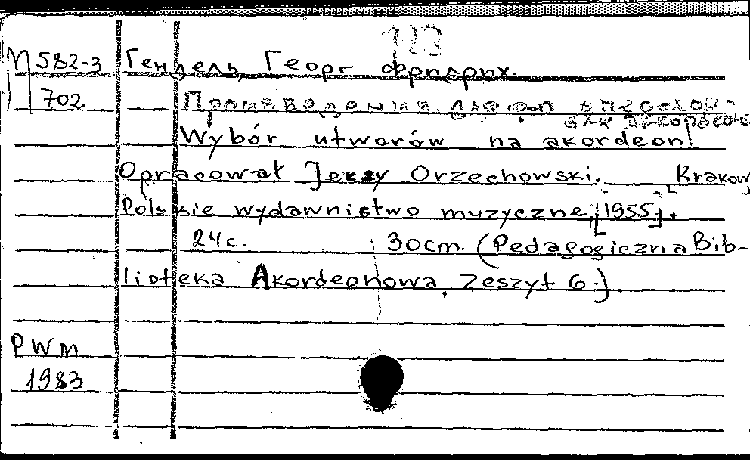 М 582-3 Гендель, Георг Фридрих.
702. Произведения для
для аккордеона
Wybór utworów na akordeon.
Opracował Jerzy Orzechowski. Kraków
Polskie wydawnictwo muzyczne, [1955].
24с. 30cm. (Pedagogiczna Bib-
lioteka Akordeonowa. Zeszyt 6.).
PWM
1983